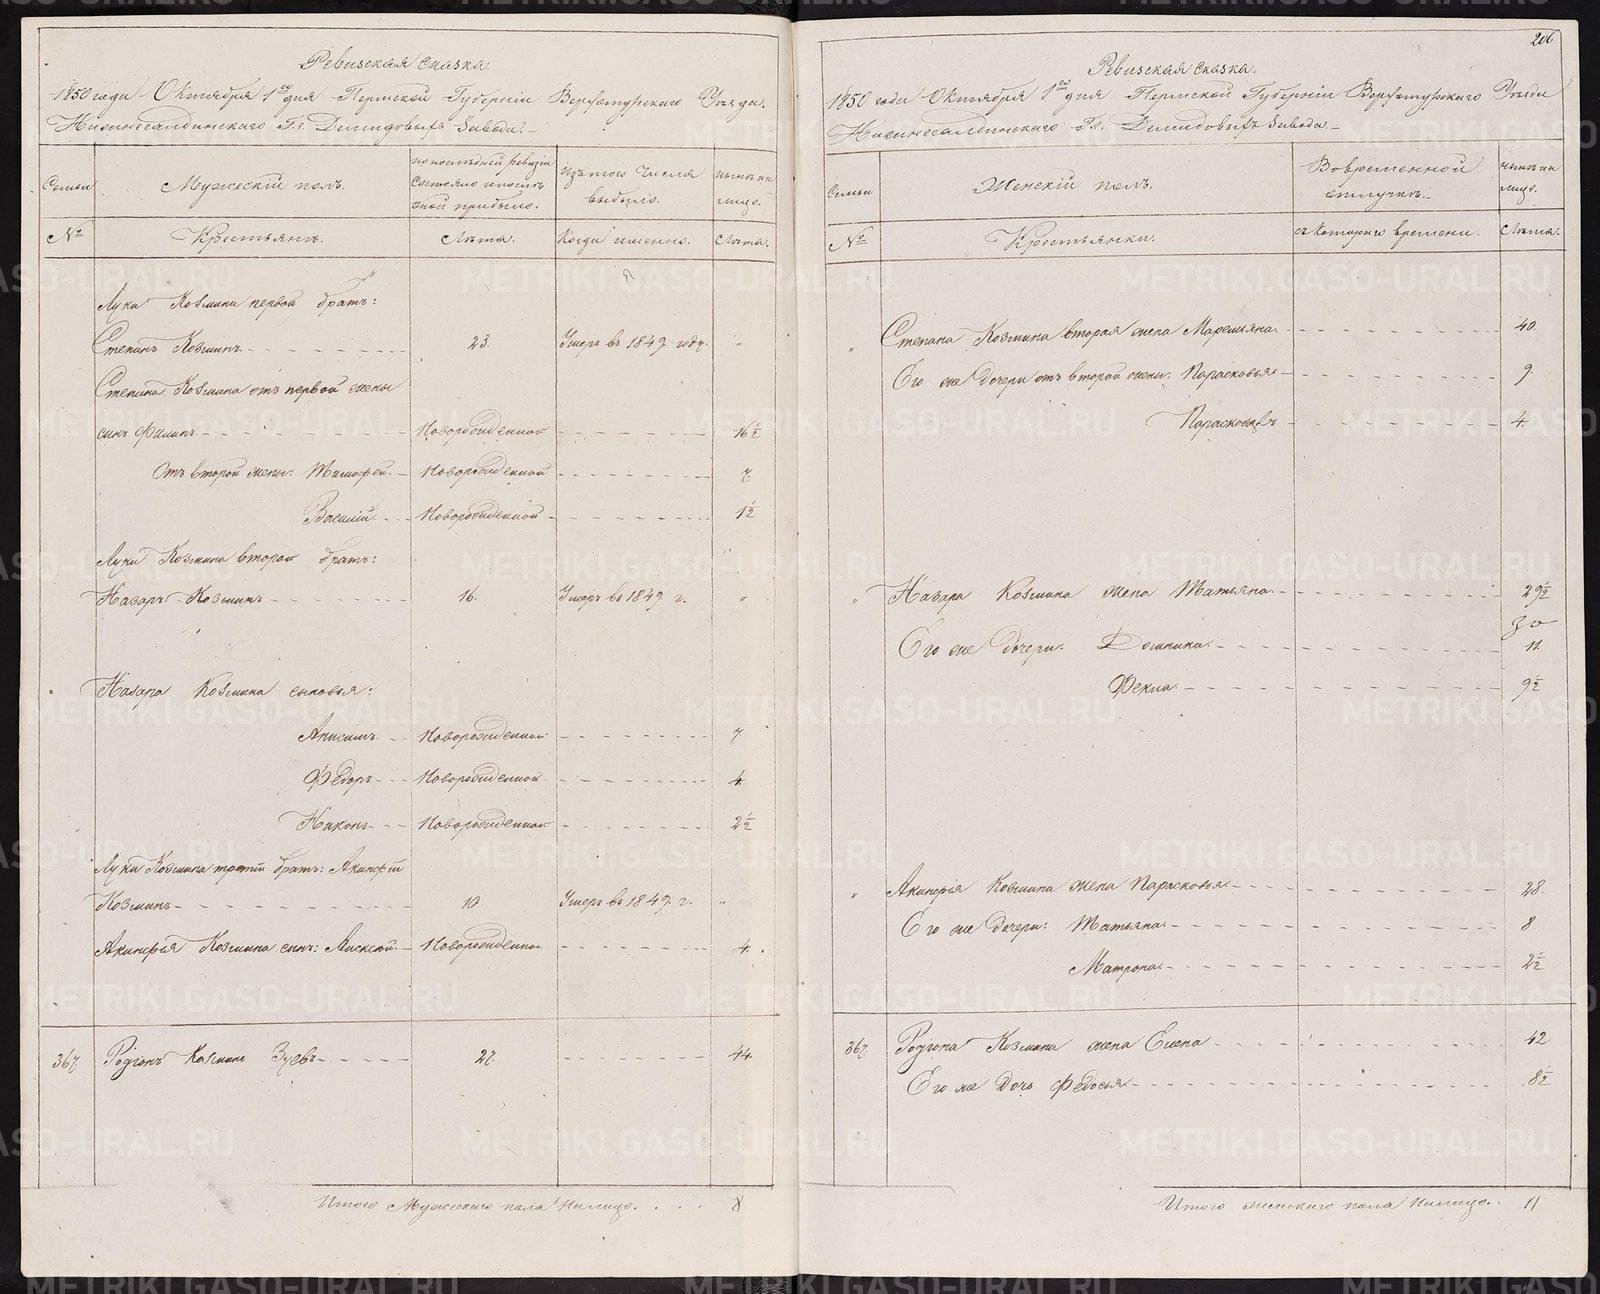 Ревизская сказка.
1850 года Октября 1го дня Пермской Губернiи Верхотурскаго Уѣзда.
Нижнесалдинскаго Гг. Демидовыхъ Завода.
Семьи
Мужескiй полъ.
по последней ревизiи состояло и после оной прибыло.
Изъ того числа выбыло.
ныне на лицо.
№
Крестьяне.
Лѣта.
Когда именно.
Лѣта.
Луки Козмина первой братъ:
Степанъ Козминъ 23. Умеръ въ 1849. году. "
Степана Козмина отъ первой жены
сынъ Филипъ. Новорожденной 16½
Отъ второй жены: Тимофей. Новорожденной 7
Василiй. Новорожденной 1½
Луки Козмина второй братъ:
Назаръ Козминъ 16. Умеръ въ 1849. г. "
Назара Козмина сыновья:
Анисимъ. Новорожденной 7
Федоръ Новорожденной 4
Никонъ Новорожденной 2½
Луки Козмина третiй братъ: Акинфiй
Козминъ 10 Умеръ въ 1849. г. "
Акинфiя Козмина сынъ: Алексей. Новорожденной 4.
367. Родiонъ Козминъ Зуевъ 27. 44.
Итого Мужескаго пола Налицо. 8
206
Ревизская Сказка.
1850 года Октября 1го дня Пермской Губернiи Верхотурскаго Уѣзда
Нижнесалдинскаго Гг. Демидовыхъ Завода.
Семьи
Женскiй полъ.
Во временной отлучке.
ныне на лицо.
№
Крестьянки.
съ котораго времени.
Лѣта.
" Степана Козмина вторая жена Маремьяна. 40.
Его же дочери отъ второй жены: Парасковья 9.
Парасковья 4.
" Назара Козмина жена Татьяна. 29½
30
Его же дочери: Домника. 11
Фекла. 9½
" Акинфiя Козмина жена Парасковья 28.
Его же дочери: Татьяна. 8
Матрона. 2½
367. Родiона Козмина жена Елена 42
Его же дочь Федосья 8½
Итого женскаго пола Налицо. 11
METRIKI.GASO-URAL.RU